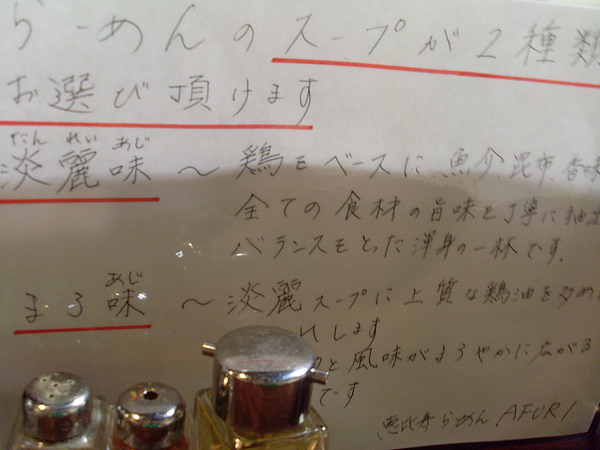 らーめんのスープが2種類
お選び頂けます
たん れい あじ
淡麗味 〜 鶏をベースに、魚介、昆布、香味
全ての食材の旨味を丁寧に抽出
バランスをとった渾身の一杯です。
あじ
まろ味 〜 淡麗スープに上質な鶏油を多め
れします
と風味がまろやかに広がる
です
恵比寿らーめん AFURI